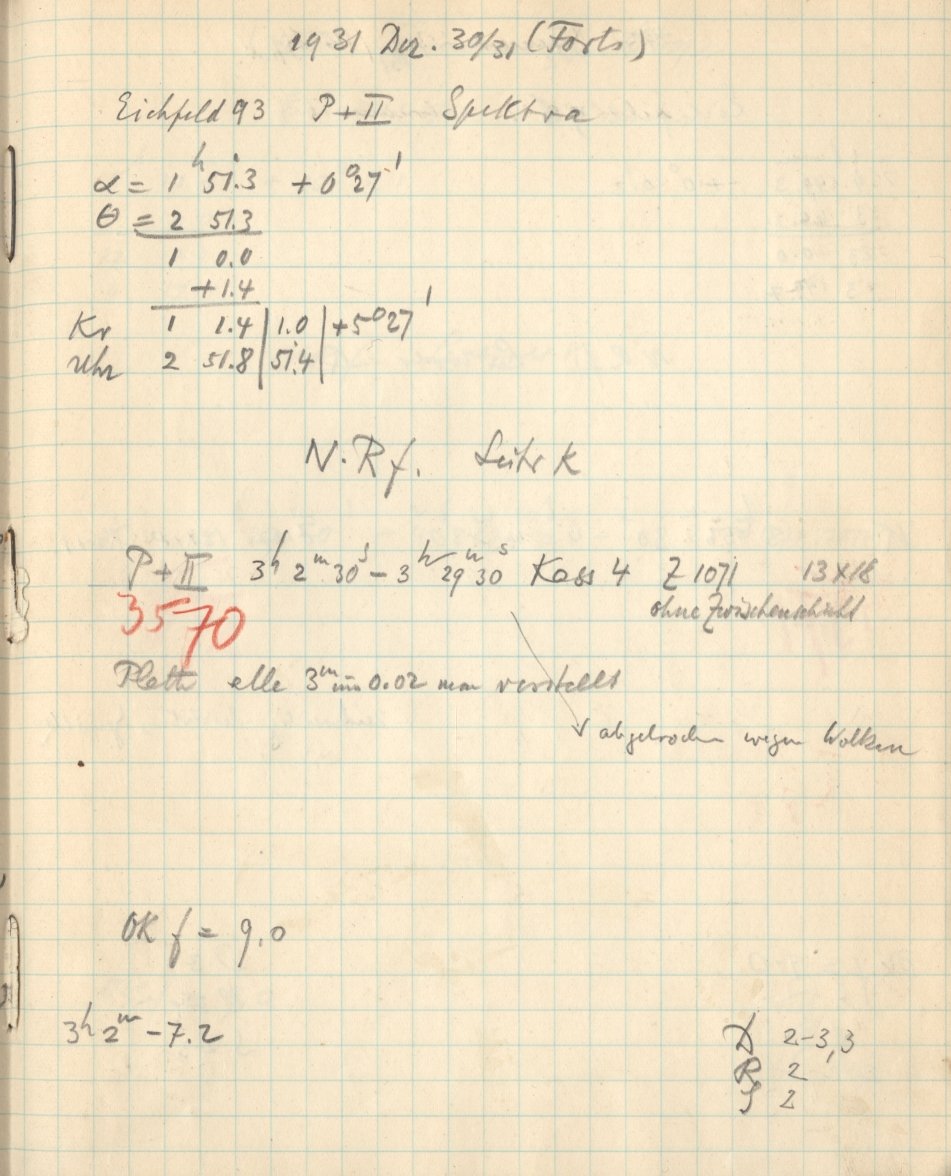 1931 Dez. 30/31 (Forts)
Eichfeld 93 P+II Spektra
α = 1ʰ 51.3 +0°27'
θ = 2 51.3
1 0.0
+1.4
Kr 1 1.4 | 1.0 | +5°27'
Uhr 2 51.8 | 51.4 |
N.Rf.
P+II 3ʰ 2ᵐ 30ˢ – 3ʰ 29ᵐ 30ˢ Kass 4 Z 1071 13×18
ohne Zwischenschicht
3570
Platte alle 3ᵐ um 0.02 mm verstellt
abgebrochen wegen Wolken
OK f = 9,0
3ʰ 2ᵐ –7.2
D 2-3,3
R 2
S 2